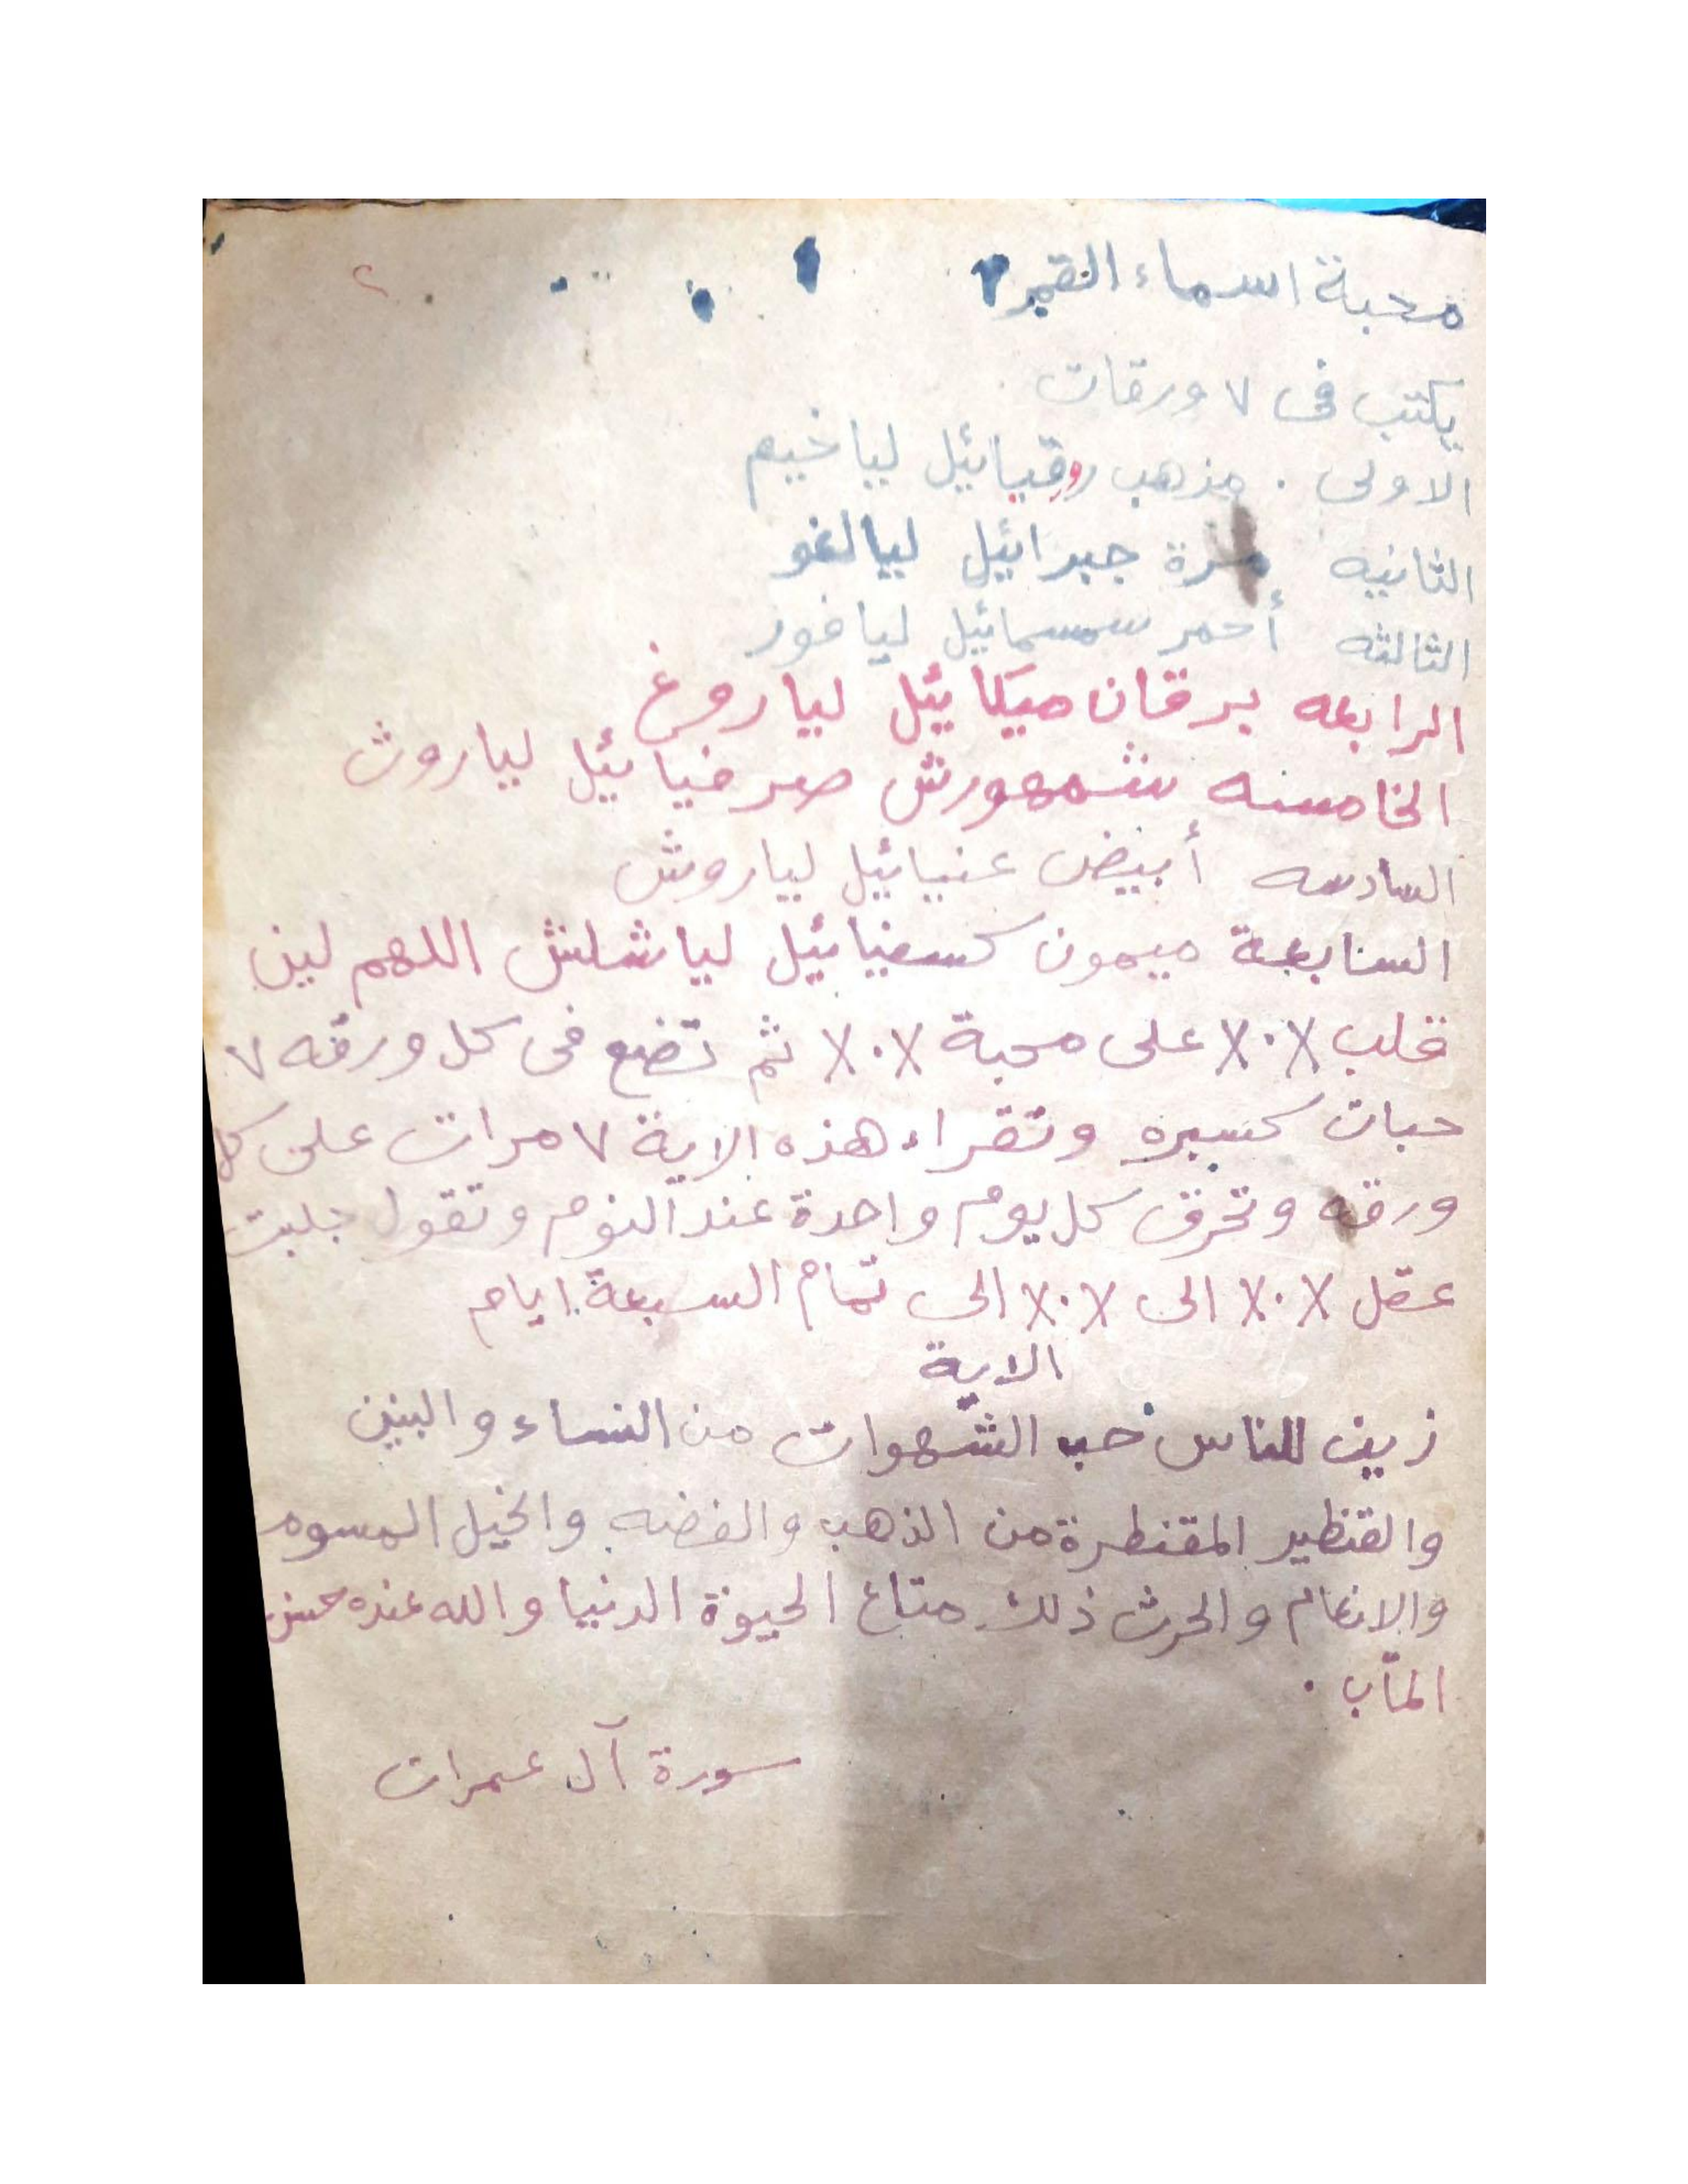 محبة اسماء القمر
٢
يكتب فى ٧ ورقات
الاولى . مذهب روقيائيل لياخيم
الثانيه مرة جبرائيل ليالغو
الثالثه أحمر سمسمائيل ليافور
الرابعه برقان ميكائيل لياروغ
الخامسه شمهورش صرفيائيل لياروث
السادسه أبيض عنيائيل لياروش
السابعة ميمون كسفيائيل لياشلش اللهم لين
قلب X٠X على محبة X٠X ثم تضع فى كل ورقه ٧
حبات كسبره وتقراء هذه الاية ٧ مرات على كل
ورقه وتحرق كل يوم واحدة عند النوم وتقول جلبت
عقل X٠X الى X٠X الى تمام السبعة ايام
الاية
زين للناس حب الشهوات من النساء والبنين
والقنطير المقنطرة من الذهب والفضه والخيل المسومه
والانعام والحرث ذلك متاع الحيوة الدنيا والله عنده حسن
المآب .
سورة آل عمران